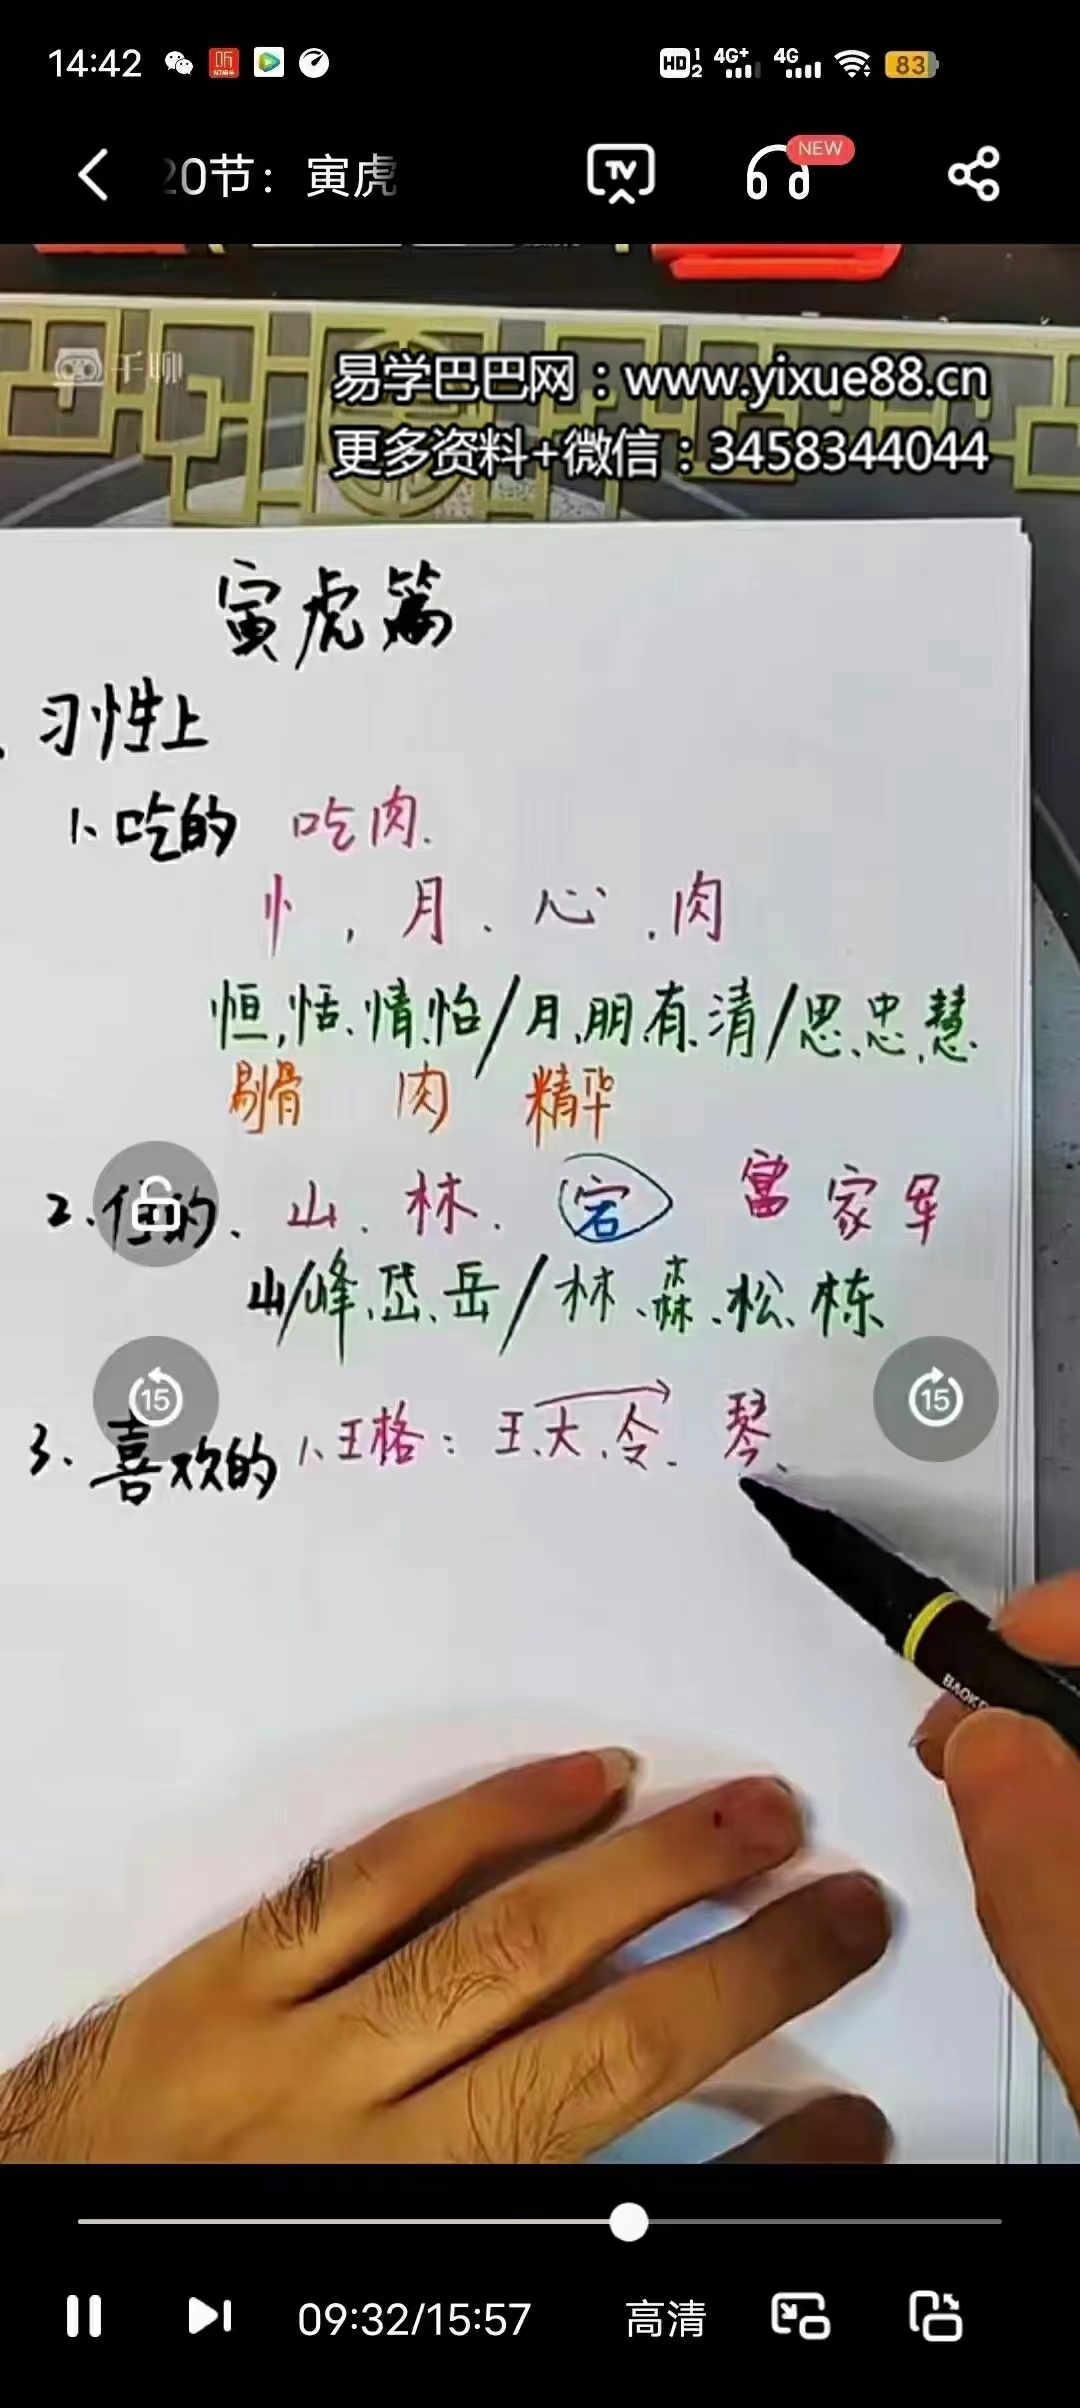 14:42 HD 1 2 4G+ 4G 83
20节：寅虎 TV NEW
千聊
易学巴巴网：www.yixue88.cn
更多资料+微信：3458344044
寅虎篇
、习性上
1、吃的 吃肉.
忄,月、心、肉
恒,恬、情,怡/月,朋,有,清/思、忠,慧
剔骨 肉 精华
2、住的、山、林、宕 富 家 军
山/峰、岱、岳/林、森、松、栋
15 15
3、喜欢的 1、王格：王、大、令、琴、
BAOK
09:32/15:57 高清